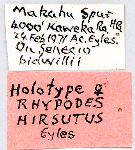 Makahu Spur
4000' Kaweka Ra, HB
24 Feb 1971 A.C. Eyles.
On Senecio
bidwillii
Holotype ♀
RHYPODES
HIRSUTUS
Eyles